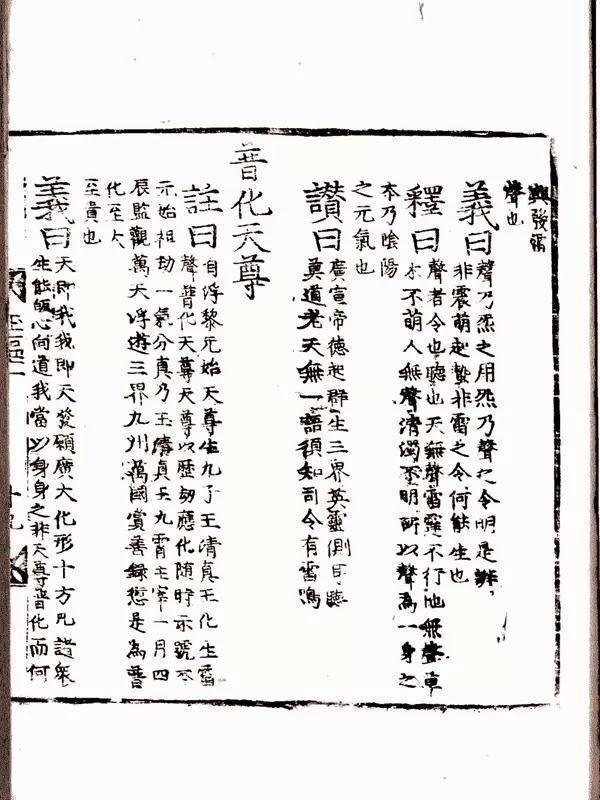 興發
聲也
義曰 聲乃炁之用炁乃聲之令明是
非震萌起蟄非雷之令何能生也
釋曰 聲者令也聽也天無聲雷霆不行地無聲草
木不萌人無聲清濁不明所以聲為一身之
本乃陰陽
之元氣也
讚曰 廣宣帝德起群生三界英靈側耳聽
莫道老天無一語須知司令有雷鳴
普化天尊
註曰 自浮黎元始天尊生九子玉清真王化生雷
聲普化天尊天尊以歷劫應化随時示號本
元始祖劫一氣分真乃玉清真王九霄主宰一月四
辰監觀萬天浮遊三界九州萬國賞善録愆是為普
化至大
至貴也
義曰 天即我我即天發願廣大化形十方凡諸衆
生能皈心向道我當以身身之非天尊普化而何
十九